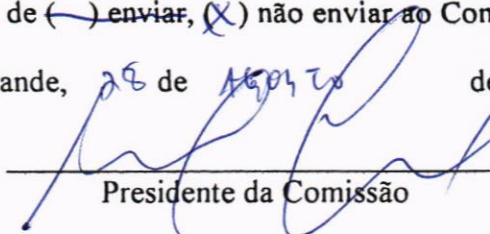 de ( ) enviar, (X) não enviar ao Con
ande, 28 de Agosto de
Presidente da Comissão